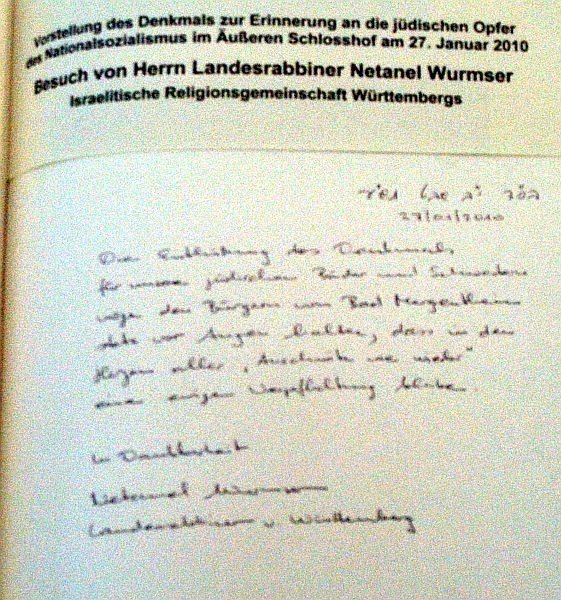 Vorstellung des Denkmals zur Erinnerung an die jüdischen Opfer
des Nationalsozialismus im Äußeren Schlosshof am 27. Januar 2010
Besuch von Herrn Landesrabbiner Netanel Wurmser
Israelitische Religionsgemeinschaft Württembergs
27/01/2010
Die Enthüllung des Denkmals
für unsere jüdischen Brüder und Schwestern
möge den Bürgern von Bad Mergentheim
stets vor Augen halten, dass in den
Herzen aller "Auschwitz nie mehr"
eine ewige Verpflichtung bleibe.
In Dankbarkeit
Netanel Wurmser
Landesrabbiner v. Württemberg